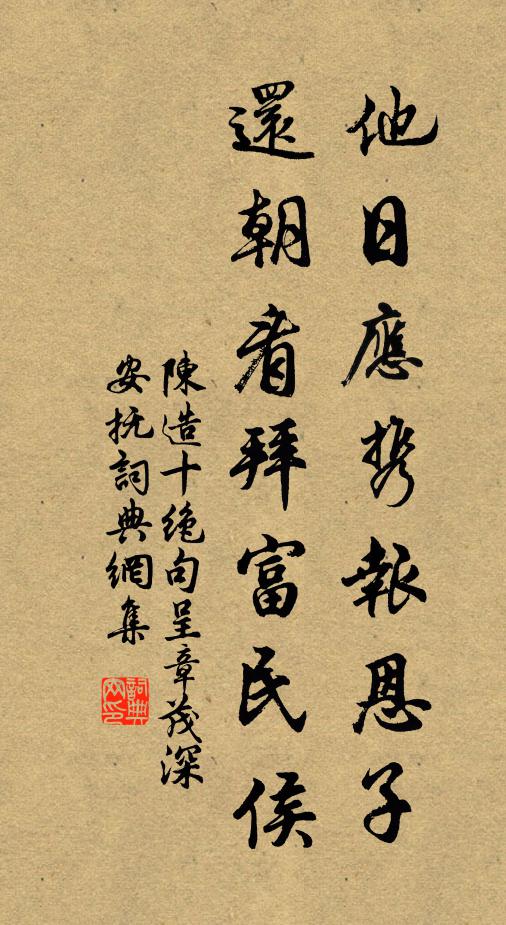 他日應携報恩子
還朝看拜富民侯
陳造十绝句呈章茂深
安抚詞典網集
詞典
网印